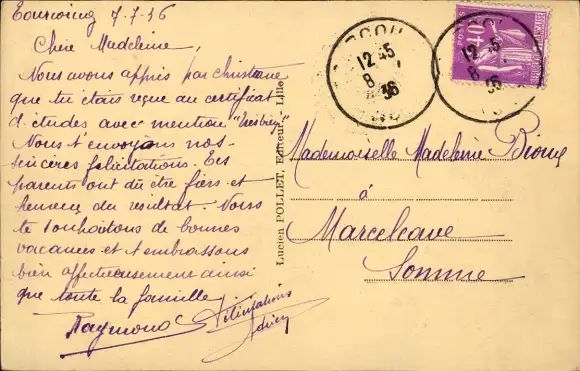 Tourcoing 7.7.36
Chère Madeleine,
Nous avons appris par Christiane
que tu étais reçue au certificat
d'études avec mention "très bien".
Nous t'envoyons nos
sincères félicitations. Tes
parents ont dû être fiers et
heureux du résultat. Nous
te souhaitons de bonnes
vacances et t'embrassons
bien affectueusement ainsi
que toute la famille
Raymond
Félicitations
Lucien POLLET, Editeur, Lille
12 45
8
36
12 45
8
36
POSTES
40
Mademoiselle Madeleine
à
Marcelcave
Somme